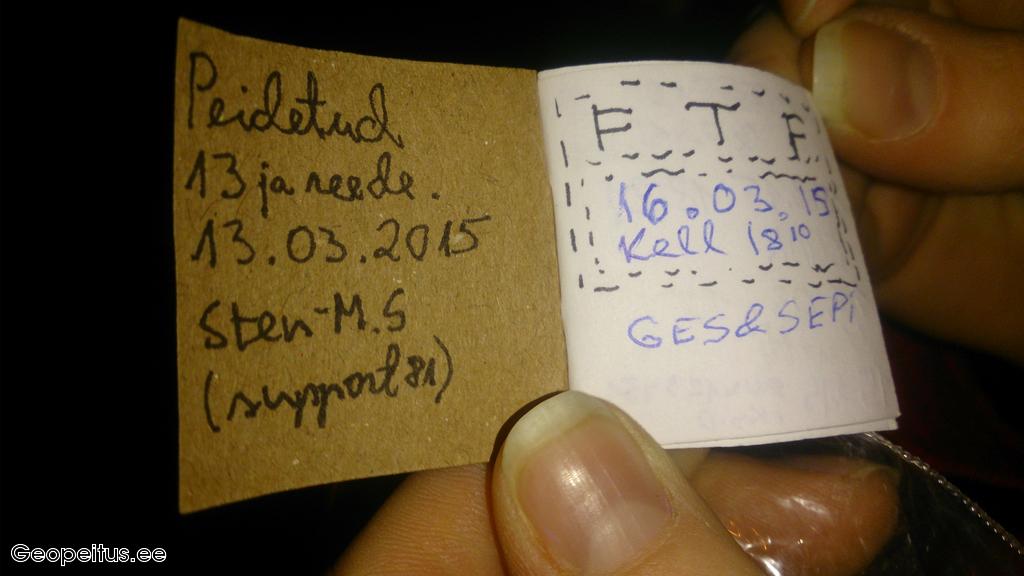 Peidetud
13 ja reede.
13.03.2015
Sten-M.S
(support81)
F T F
16.03.15
Kell 18¹⁰
GES&SEPi
Geopeitus.ee